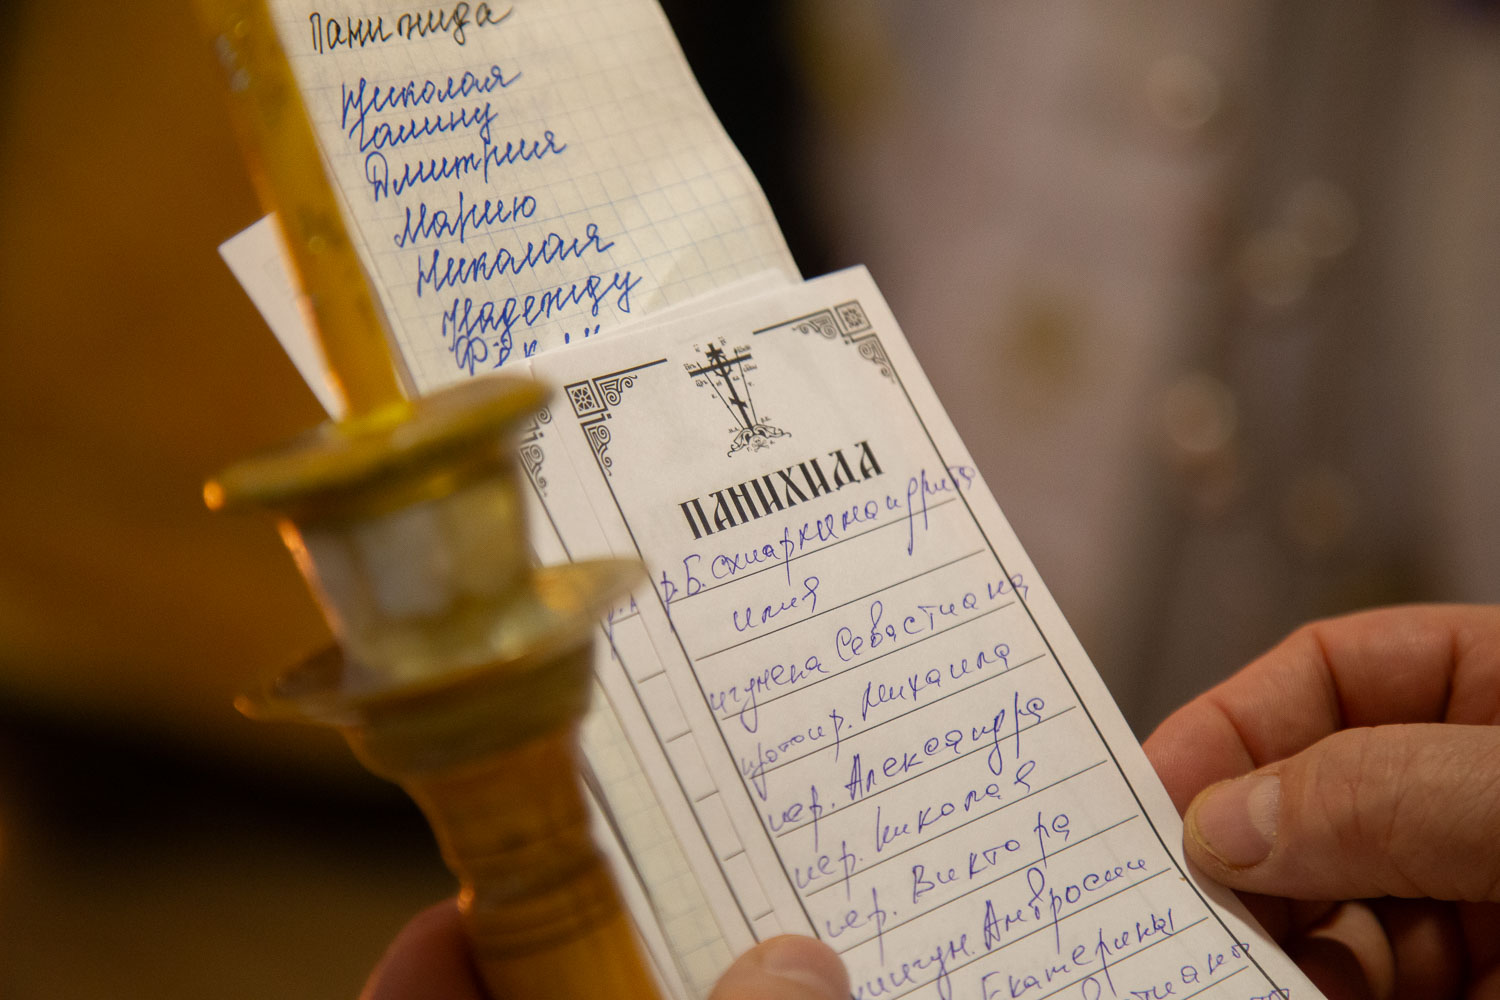 Панихида
Николая
Галину
Дмитрия
Марию
Николая
Надежду
ПАНИХИДА
р.Б. схиархимандрита
илия
игумена Севастиана
протоиер. Михаила
иер. Александра
иер. Николая
иер. Виктора
Амвросии
Екатерины